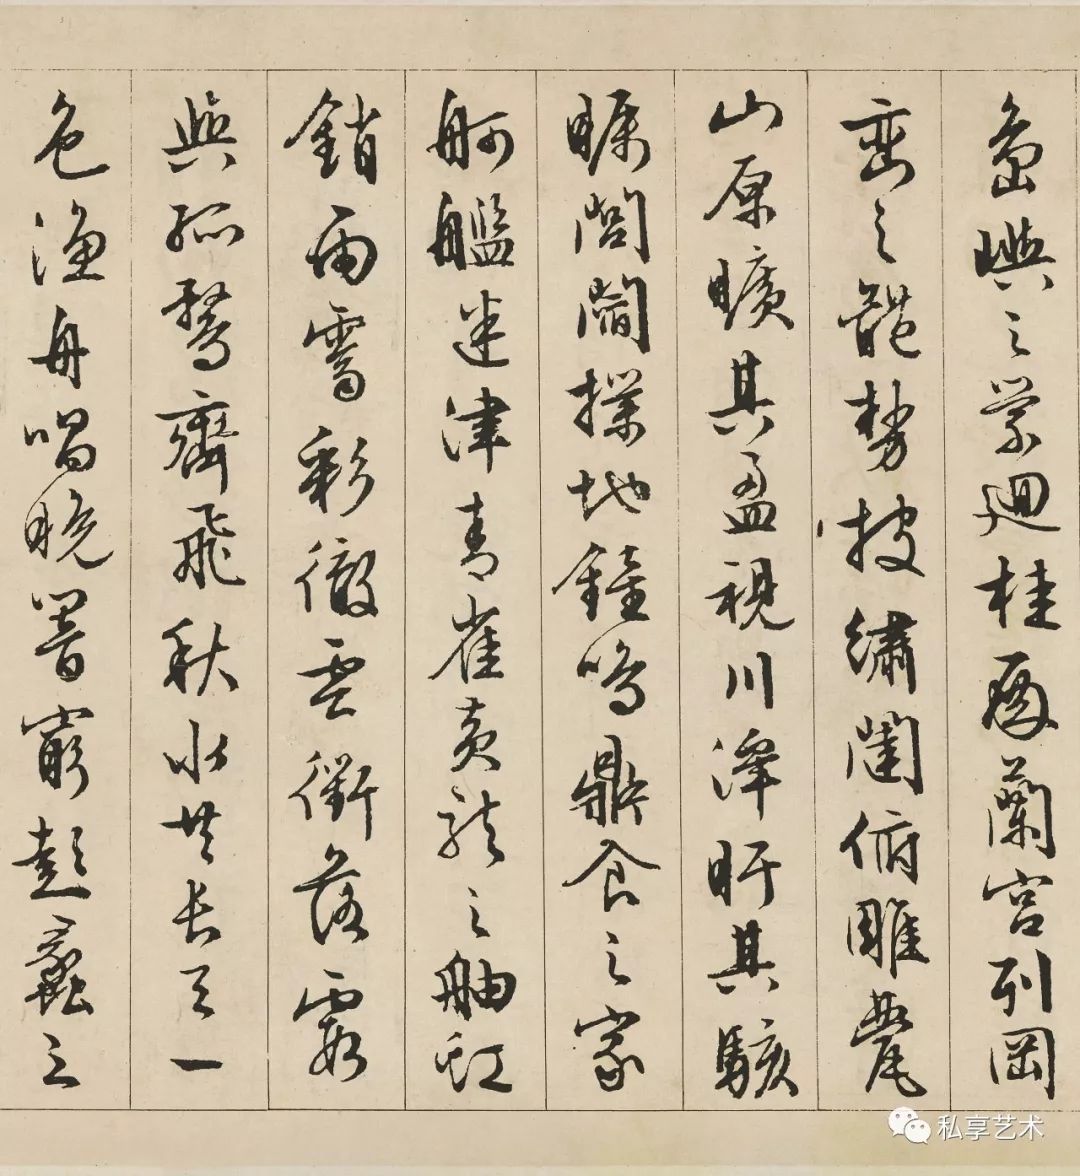 島嶼之縈迴桂殿蘭宮列岡
巒之體勢披繡闥俯雕甍
山原曠其盈視川澤盱其駭
矚閭閻撲地鐘鳴鼎食之家
舸艦迷津青雀黃龍之舳虹
銷雨霽彩徹雲衢落霞
與孤鶩齊飛秋水共長天一
色漁舟唱晚響窮彭蠡之
私享艺术